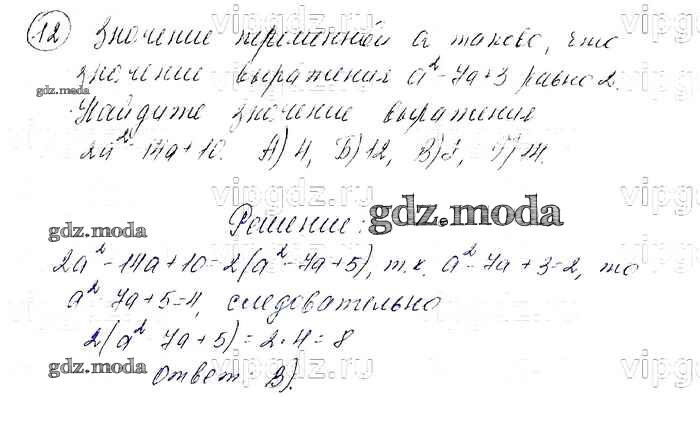 12 Значение переменной a таково, что
значение выражения a² - 7a + 3 равно 2.
gdz.moda
Найдите значение выражения
2a² - 14a + 10. А) 4, Б) 12, В) 8, Г) 14.
gdz.moda
Решение:
gdz.moda
2a² - 14a + 10 = 2(a² - 7a + 5), т.к. a² - 7a + 3 = 2, то
a² - 7a + 5 = 4, следовательно
2(a² - 7a + 5) = 2 · 4 = 8
gdz.moda
Ответ В).
vipgdz.ru